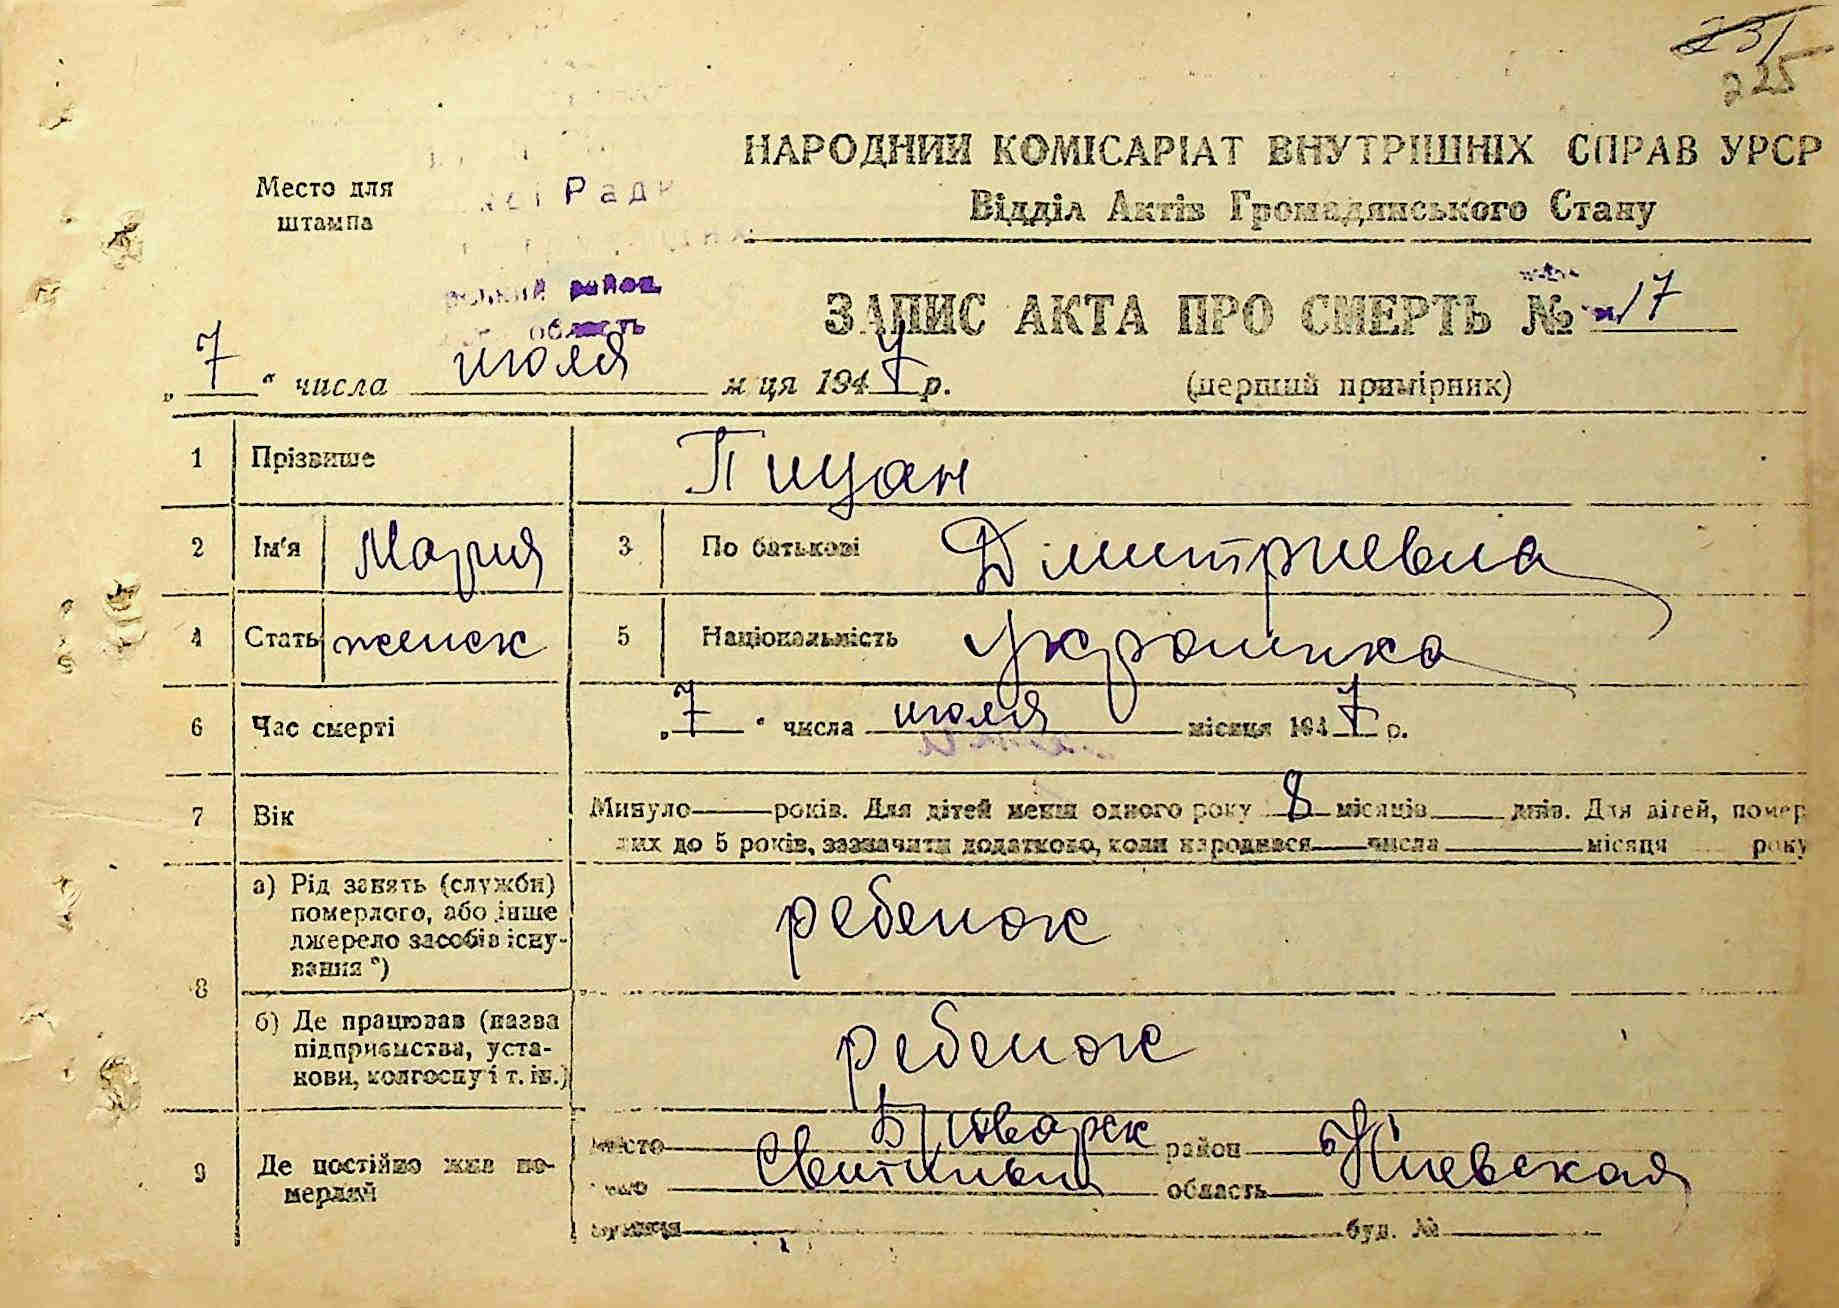 231
225
НАРОДНИЙ КОМІСАРІАТ ВНУТРІШНІХ СПРАВ УРСР
Место для штампа
Відділ Актів Громадянського Стану
Рад
район
область
ЗАПИС АКТА ПРО СМЕРТЬ № 17
„7“ числа июля м ця 1947 р. (перший примірник)
1 Прізвище Пицан
2 Ім'я Мария 3 По батькові Дімитриевна
4 Стать женск 5 Національність украинка
6 Час смерті „7“ числа июля місяця 1947 р.
7 Вік Минуло ___ років. Для дітей менш одного року 8 місяців ___ днів. Для дітей, помер
лих до 5 років, зазначити додатково, коли народився ___ числа ___ місяця ___ року
8 а) Рід занять (служби) померлого, або інше джерело засобів існування *) ребенок
б) Де працював (назва підприємства, установи, колгоспу і т. ін.) ребенок
9 Де постійно жив померлий місто район
село область Киевская
вулиця буд. №